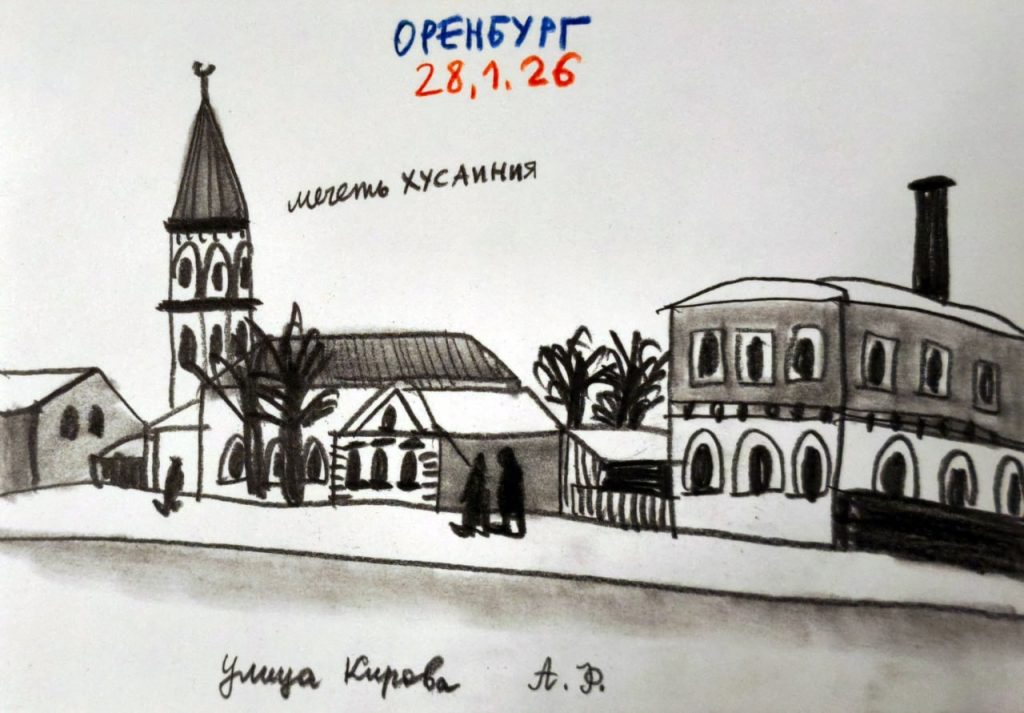 ОРЕНБУРГ
28,1.26
мечеть ХУСАИНИЯ
Улица Кирова А.Р.